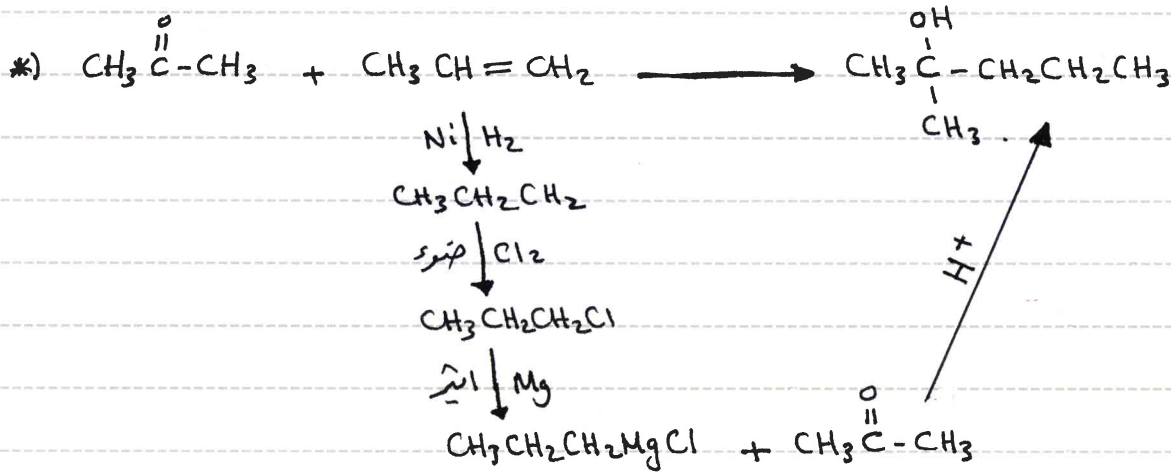 O
*) CH3 C-CH3 + CH3 CH = CH2 → OH
CH3 C - CH2CH2CH3
CH3 .
Ni H2
CH3 CH2 CH2
ضوء Cl2
CH3 CH2CH2Cl
H+
ايثر Mg
O
CH3CH2CH2MgCl + CH3 C-CH3